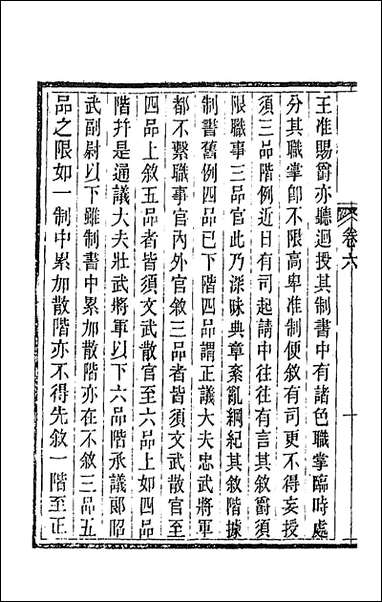 卷六
十
王准賜爵亦聽迴授其制書中有諸色職掌臨時處
分其職掌卽不限高卑准制便敘有司更不得妄授
須三品階例近日有司起請中往往有言其敘爵須
限職事三品官此乃深昧典章紊亂綱紀其敘階據
制書舊例四品已下階四品謂正議大夫忠武將軍
都不繫職事官內外官敘三品者皆須文武散官至
四品上敘五品者皆須文武散官至六品上如四品
階幷是通議大夫壯武將軍以下六品階承議郎昭
武副尉以下雖制書中累加散階亦在不敘三品五
品之限如一制中累加散階亦不得先敘一階至正